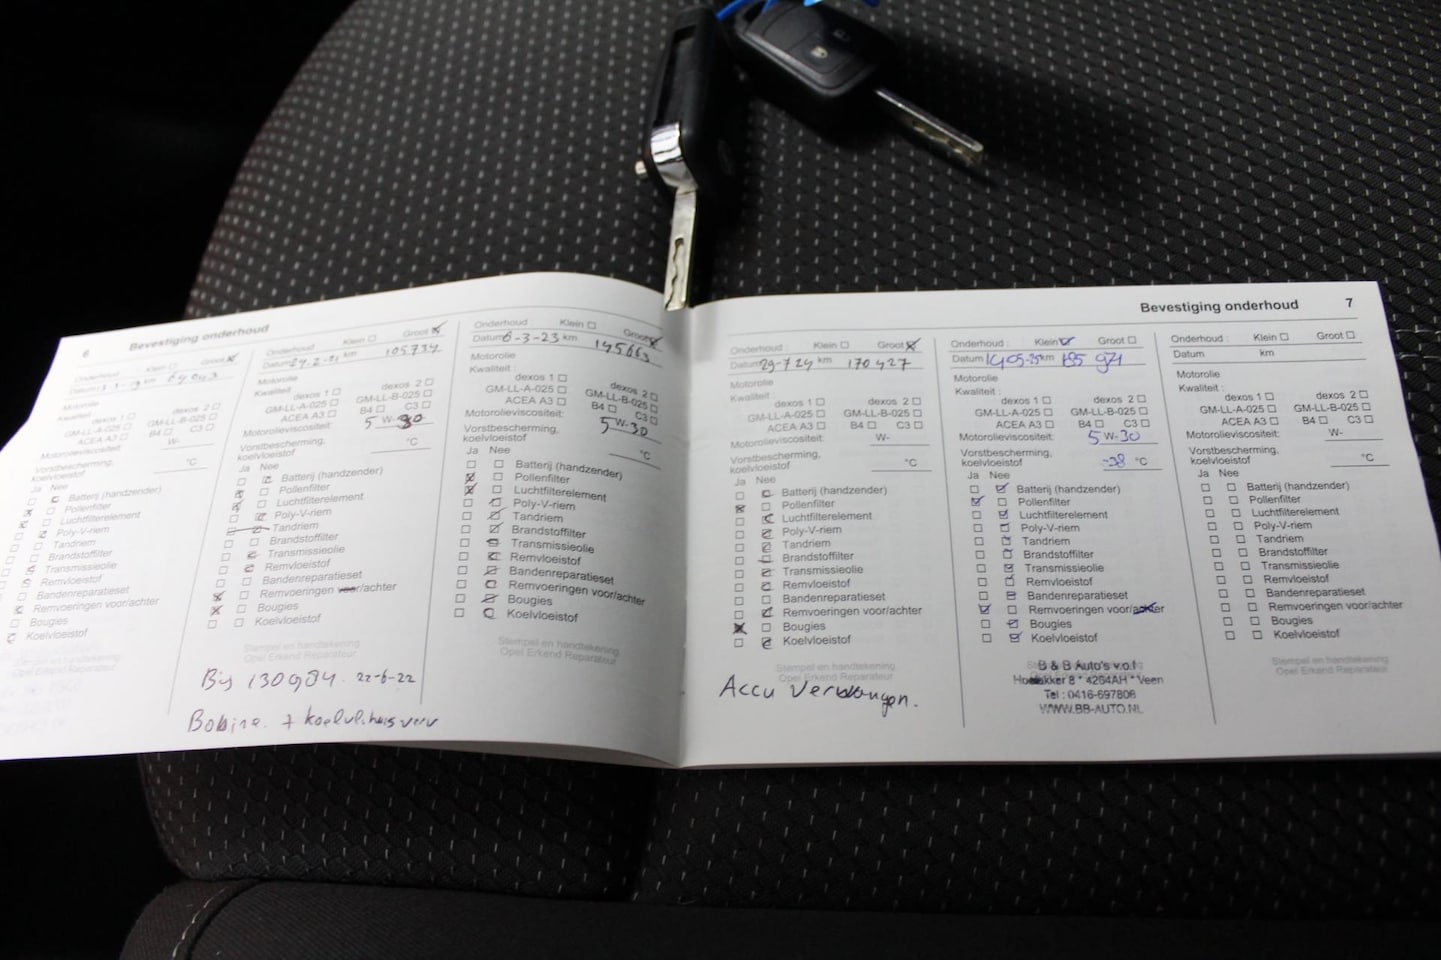 6 Bevestiging onderhoud
Onderhoud : Klein Groot
Datum km
Motorolie
Kwaliteit : dexos 1 dexos 2
GM-LL-A-025 GM-LL-B-025
ACEA A3 B4 C3
Motorolieviscositeit: W-
Vorstbescherming,
koelvloeistof °C
Ja Nee
Batterij (handzender)
Pollenfilter
Luchtfilterelement
Poly-V-riem
Tandriem
Brandstoffilter
Transmissieolie
Remvloeistof
Bandenreparatieset
Remvoeringen voor/achter
Bougies
Koelvloeistof
Stempel en handtekening
Opel Erkend Reparateur
Onderhoud : Klein Groot
Datum km 105734
Motorolie
Kwaliteit : dexos 1 dexos 2
GM-LL-A-025 GM-LL-B-025
ACEA A3 B4 C3
Motorolieviscositeit: 5 W-30
Vorstbescherming,
koelvloeistof °C
Ja Nee
Batterij (handzender)
Pollenfilter
Luchtfilterelement
Poly-V-riem
Tandriem
Brandstoffilter
Transmissieolie
Remvloeistof
Bandenreparatieset
Remvoeringen voor/achter
Bougies
Koelvloeistof
Stempel en handtekening
Opel Erkend Reparateur
Bij 130984. 22-6-22
Bobine. + koelvl.huis verv
Onderhoud : Klein Groot
Datum 6-3-23 km 145663
Motorolie
Kwaliteit : dexos 1 dexos 2
GM-LL-A-025 GM-LL-B-025
ACEA A3 B4 C3
Motorolieviscositeit: 5 W-30
Vorstbescherming,
koelvloeistof °C
Ja Nee
Batterij (handzender)
Pollenfilter
Luchtfilterelement
Poly-V-riem
Tandriem
Brandstoffilter
Transmissieolie
Remvloeistof
Bandenreparatieset
Remvoeringen voor/achter
Bougies
Koelvloeistof
Stempel en handtekening
Opel Erkend Reparateur
Bevestiging onderhoud 7
Onderhoud : Klein Groot
Datum 29-7-24 km 170427
Motorolie
Kwaliteit : dexos 1 dexos 2
GM-LL-A-025 GM-LL-B-025
ACEA A3 B4 C3
Motorolieviscositeit: W-
Vorstbescherming,
koelvloeistof °C
Ja Nee
Batterij (handzender)
Pollenfilter
Luchtfilterelement
Poly-V-riem
Tandriem
Brandstoffilter
Transmissieolie
Remvloeistof
Bandenreparatieset
Remvoeringen voor/achter
Bougies
Koelvloeistof
Stempel en handtekening
Opel Erkend Reparateur
Accu vervangen.
Onderhoud : Klein Groot
Datum 14-05-25 km 185 974
Motorolie
Kwaliteit : dexos 1 dexos 2
GM-LL-A-025 GM-LL-B-025
ACEA A3 B4 C3
Motorolieviscositeit: 5 W-30
Vorstbescherming,
koelvloeistof -38 °C
Ja Nee
Batterij (handzender)
Pollenfilter
Luchtfilterelement
Poly-V-riem
Tandriem
Brandstoffilter
Transmissieolie
Remvloeistof
Bandenreparatieset
Remvoeringen voor/achter
Bougies
Koelvloeistof
B & B Auto's v.o.f
8 * 4264AH * Veen
Tel : 0416-697806
WWW.BB-AUTO.NL
Onderhoud : Klein Groot
Datum km
Motorolie
Kwaliteit : dexos 1 dexos 2
GM-LL-A-025 GM-LL-B-025
ACEA A3 B4 C3
Motorolieviscositeit: W-
Vorstbescherming,
koelvloeistof °C
Ja Nee
Batterij (handzender)
Pollenfilter
Luchtfilterelement
Poly-V-riem
Tandriem
Brandstoffilter
Transmissieolie
Remvloeistof
Bandenreparatieset
Remvoeringen voor/achter
Bougies
Koelvloeistof
Stempel en handtekening
Opel Erkend Reparateur